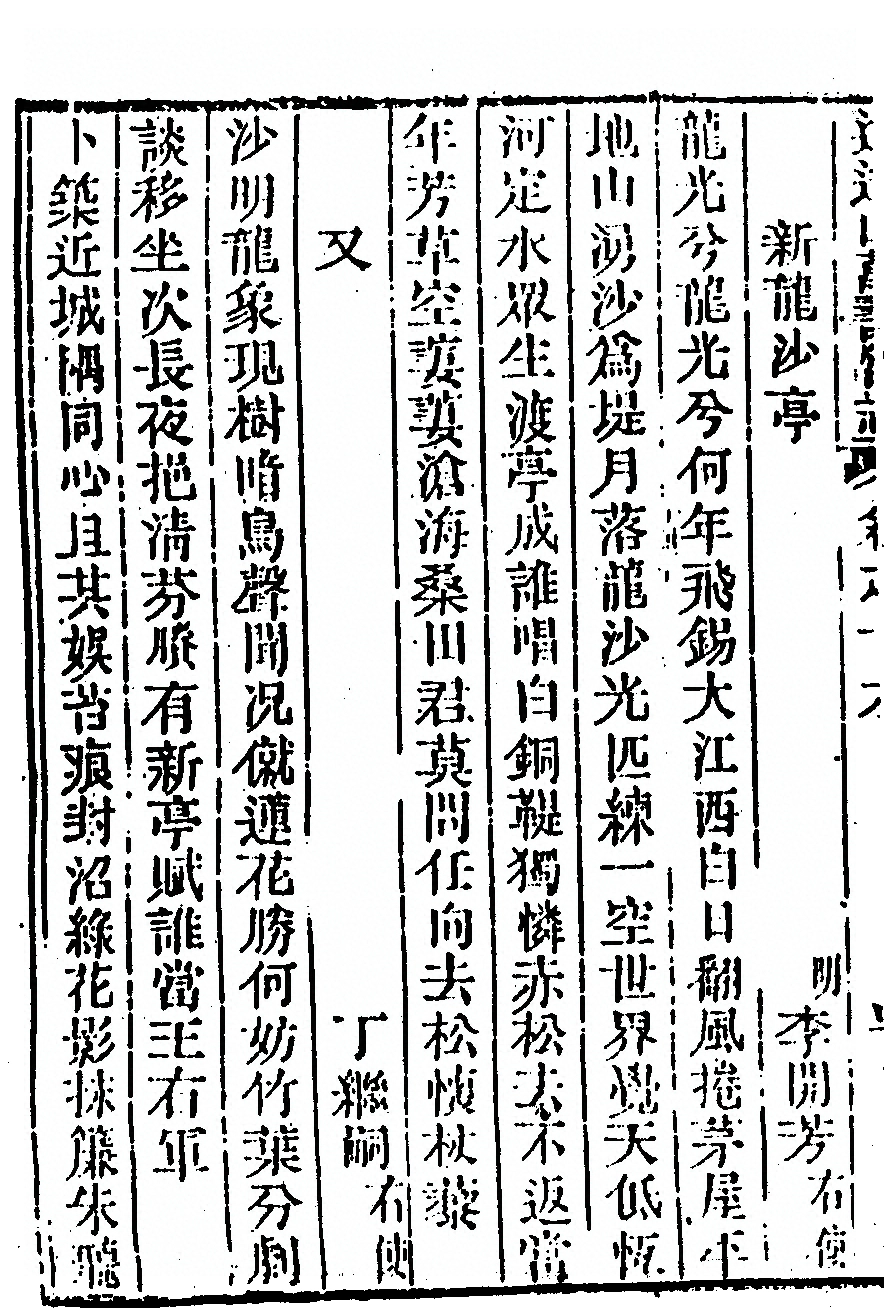 新龍沙亭
明李開芳右使
龍光兮龍光兮何年飛錫大江西白日翻風捲茅屋平
地山湧沙爲堤月落龍沙光匹練一空世界覺天低恆
河定水眾生渡亭成誰唱白銅鞮獨憐赤松去不返當
年芳草空萋萋滄海桑田君莫問任向去松愼杖藜
又
丁繼嗣右使
沙明龍象現樹暗鳥聲聞况僦蓮花勝何妨竹葉分劇
談移坐次長夜挹清芬賸有新亭賦誰當王右軍
卜築近城隅同心且共娛苔痕封沼綠花影抹簾朱聽